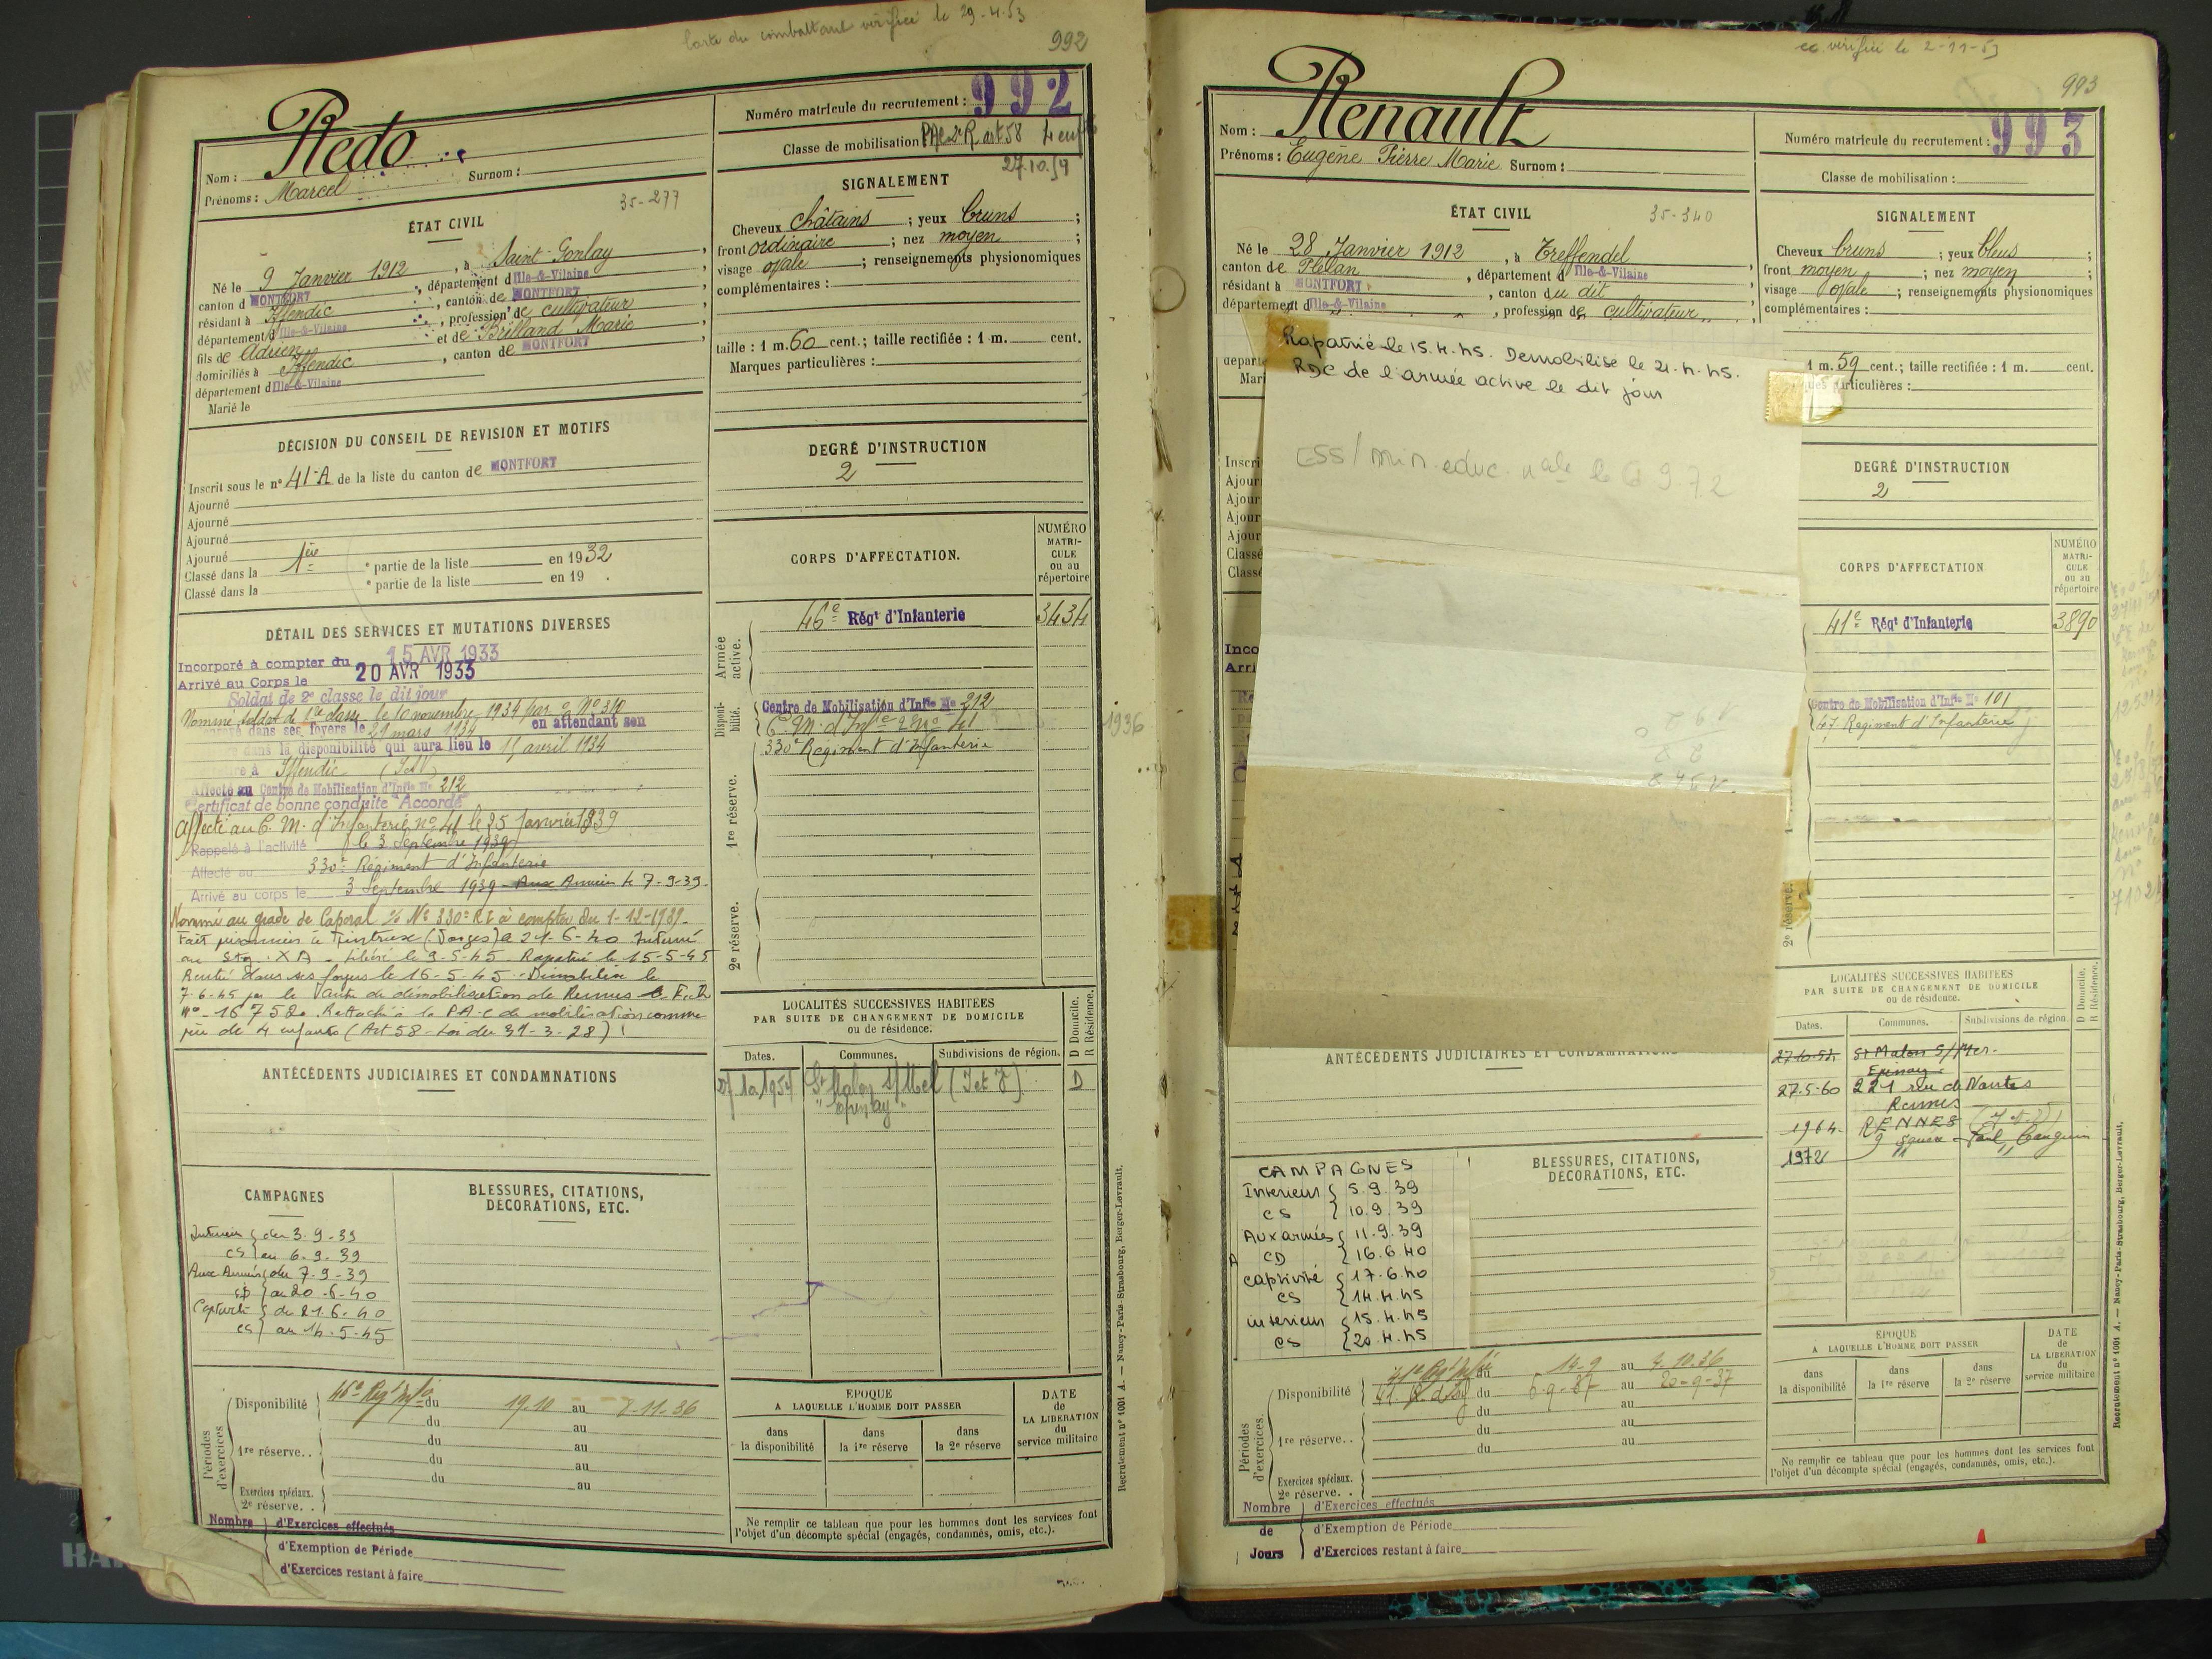 Carte du combattant vérifiée le 29-4-53
992
Nom : Redo
Prénoms : Marcel Surnom :
Numéro matricule du recrutement : 992
Classe de mobilisation PAC 2e R art 58 4 enf
27.10.54
ÉTAT CIVIL
35-277
Né le 9 Janvier 1912, à Saint-Gonlay,
canton d MONTFORT, département d Ille-&-Vilaine,
résidant à Iffendic, canton de MONTFORT,
département d Ille-&-Vilaine, profession de cultivateur,
fils de Adrien et de Brilland Marie,
domiciliés à Iffendic, canton de MONTFORT
département d Ille-&-Vilaine
Marié le
SIGNALEMENT
Cheveux châtains ; yeux bruns ;
front ordinaire ; nez moyen ;
visage ovale ; renseignements physionomiques
complémentaires :
taille : 1 m. 60 cent.; taille rectifiée : 1 m. cent.
Marques particulières :
DÉCISION DU CONSEIL DE REVISION ET MOTIFS
Inscrit sous le n° 41-A de la liste du canton de MONTFORT
Ajourné
Ajourné
Ajourné
Ajourné
Classé dans la 1ère e partie de la liste en 1932
Classé dans la e partie de la liste en 19 .
DEGRÉ D'INSTRUCTION
2
DÉTAIL DES SERVICES ET MUTATIONS DIVERSES
Incorporé à compter du 15 AVR 1933
Arrivé au Corps le 20 AVR 1933
Soldat de 2e classe le dit jour
Nommé soldat de 1re classe le 10 novembre 1934 par o. N° 310
dans ses foyers le 29 mars 1934 en attendant son
dans la disponibilité qui aura lieu le 15 avril 1934
à Iffendic (I et V)
Affecté au Centre de Mobilisation d'Infie No 212
Certificat de bonne conduite "Accordé"
Affecté au C. M. d'Infanterie n° 41 le 25 janvier 1939
Rappelé à l'activité le 3 Septembre 1939
Affecté au 330e Régiment d'Infanterie
Arrivé au corps le 3 Septembre 1939 - Aux Armées le 7-9-39.
Nommé au grade de Caporal No 330e RI à compter du 1-12-1939.
Fait prisonnier à Tintrux (Vosges) a 21-6-40 Interné
au Stg. XA - Libéré le 9-5-45. Rapatrié le 15-5-45
Rentré dans ses foyers le 16-5-45. Démobilisé le
7-6-45 par le Centre de démobilisation de Rennes
n° 16752. Rattaché à la PA.C de mobilisation comme
père de 4 enfants (Art 58 - Loi du 31-3-28) !
CORPS D'AFFECTATION.
NUMÉRO MATRICULE ou au répertoire
Armée active.
46e Régt d'Infanterie 3434
Disponibilité.
Centre de Mobilisation d'Infie No 212
C. M. d'Infie No 41
330e Régiment d'Infanterie
1936
1re réserve.
2e réserve.
LOCALITÉS SUCCESSIVES HABITÉES
PAR SUITE DE CHANGEMENT DE DOMICILE
ou de résidence.
D Domicile. R Résidence.
Dates. Communes. Subdivisions de région.
27/10/1954 St Malon s/ Mel (I et V) D
"Epinay"
ANTÉCÉDENTS JUDICIAIRES ET CONDAMNATIONS
CAMPAGNES
Intérieur du 3-9-39
CS au 6.9.39
Aux Armées du 7-9-39
au 20-6-40
Captivité du 21.6.40
CS au 14-5-45
BLESSURES, CITATIONS,
DÉCORATIONS, ETC.
Périodes d'exercices.
Disponibilité 46e Régt Infie du 19.10 au 8-11-36
du au
1re réserve.. du au
du au
du au
Exercices spéciaux.
2e réserve. .
Nombre d'Exercices effectués
d'Exemption de Période
d'Exercices restant à faire
ÉPOQUE
A LAQUELLE L'HOMME DOIT PASSER
dans la disponibilité dans la 1re réserve dans la 2e réserve
DATE de LA LIBÉRATION du service militaire
Ne remplir ce tableau que pour les hommes dont les services font
l'objet d'un décompte spécial (engagés, condamnés, omis, etc.).
Recrutement n° 1001 A. — Nancy-Paris-Strasbourg, Berger-Levrault.
cc vérifiée le 2-11-53
993
Nom : Renault
Prénoms : Eugène Pierre Marie Surnom :
Numéro matricule du recrutement : 993
Classe de mobilisation :
ÉTAT CIVIL
35-340
Né le 28 Janvier 1912, à Treffendel
canton de Plélan, département d Ille-&-Vilaine,
résidant à MONTFORT, canton du dit,
département d Ille-&-Vilaine, profession de cultivateur,
SIGNALEMENT
Cheveux bruns ; yeux bleus ;
front moyen ; nez moyen ;
visage ovale ; renseignements physionomiques
complémentaires :
1 m. 59 cent.; taille rectifiée : 1 m. cent.
particulières :
Rapatrié le 15.4.45. Démobilisé le 21.4.45.
RDC de l'armée active le dit jour
ESS/min.educ.nale le 9.72
départe
Mari
Inscri
Ajour
Ajour
Ajour
Ajour
Classé
Classé
Inco
Arri
DEGRÉ D'INSTRUCTION
2
CORPS D'AFFECTATION
NUMÉRO MATRICULE ou au répertoire
41e Régt d'Infanterie 3890
Centre de Mobilisation d'Infie No 101
47 Régiment d'Infanterie
2e réserve.
LOCALITÉS SUCCESSIVES HABITÉES
PAR SUITE DE CHANGEMENT DE DOMICILE
ou de résidence.
D Domicile. R Résidence.
Dates. Communes. Subdivisions de région.
St Malon S/Mer.
Epinay
27.5-60 221 rue de Nantes
Rennes
1964. RENNES (I et V)
1972 9 square Paul Gauguin
ANTÉCÉDENTS JUDICIAIRES ET CONDAMNATIONS
CAMPAGNES
Interieur 5.9.39
CS 10.9.39
Aux armées 11.9.39
CD 16.6.40
captivité 17.6.40
CS 14.4.45
interieur 15.4.45
CS 20.4.45
BLESSURES, CITATIONS,
DÉCORATIONS, ETC.
Périodes d'exercices.
Disponibilité 41e Régt Infie du 14-9 au 4.10.36
du 6-9-37 au 20-9-37
du au
1re réserve.. du au
du au
Exercices spéciaux.
2e réserve. .
Nombre de Jours
d'Exercices effectués
d'Exemption de Période
d'Exercices restant à faire
ÉPOQUE
A LAQUELLE L'HOMME DOIT PASSER
dans la disponibilité dans la 1re réserve dans la 2e réserve
DATE de LA LIBÉRATION du service militaire
Ne remplir ce tableau que pour les hommes dont les services font
l'objet d'un décompte spécial (engagés, condamnés, omis, etc.).
Recrutement n° 1001 A. — Nancy-Paris-Strasbourg, Berger-Levrault.